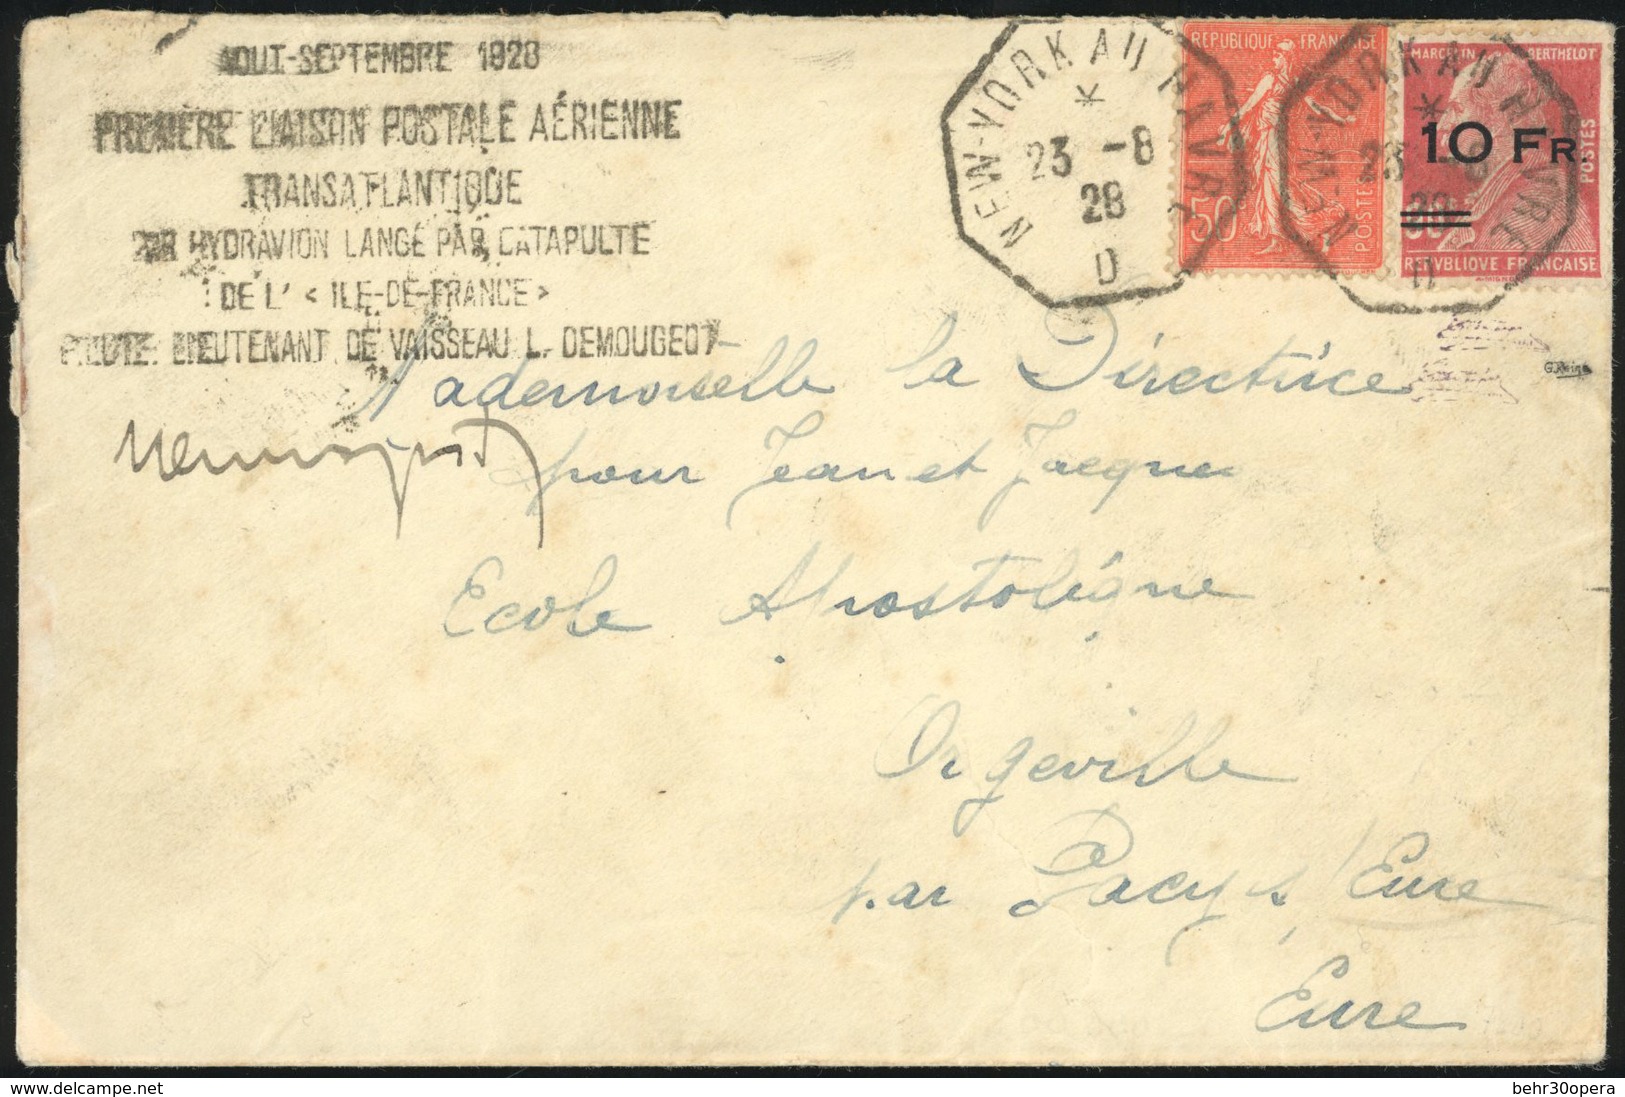 AOUT-SEPTEMBRE 1928
PREMIÈRE LIAISON POSTALE AÉRIENNE
TRANSATLANTIQUE
PAR HYDRAVION LANCÉ PAR CATAPULTE
DE L' < ILE-DE-FRANCE >
PILOTE: LIEUTENANT DE VAISSEAU L. DEMOUGEOT
NEW-YORK AU HAVRE
23 -8
28
D
REPUBLIQUE FRANÇAISE
50
POSTES
NEW-YORK AU HAVRE
23 -8
28
D
MARCELIN BERTHELOT
10 FR.
90
POSTES
REPVBLIQVE FRANCAISE
Mademoiselle la Directrice
Demougeot
pour Jean et Jacques
Ecole Apostolique
Orgeville
par Pacy s/ Eure
Eure
behr30opera